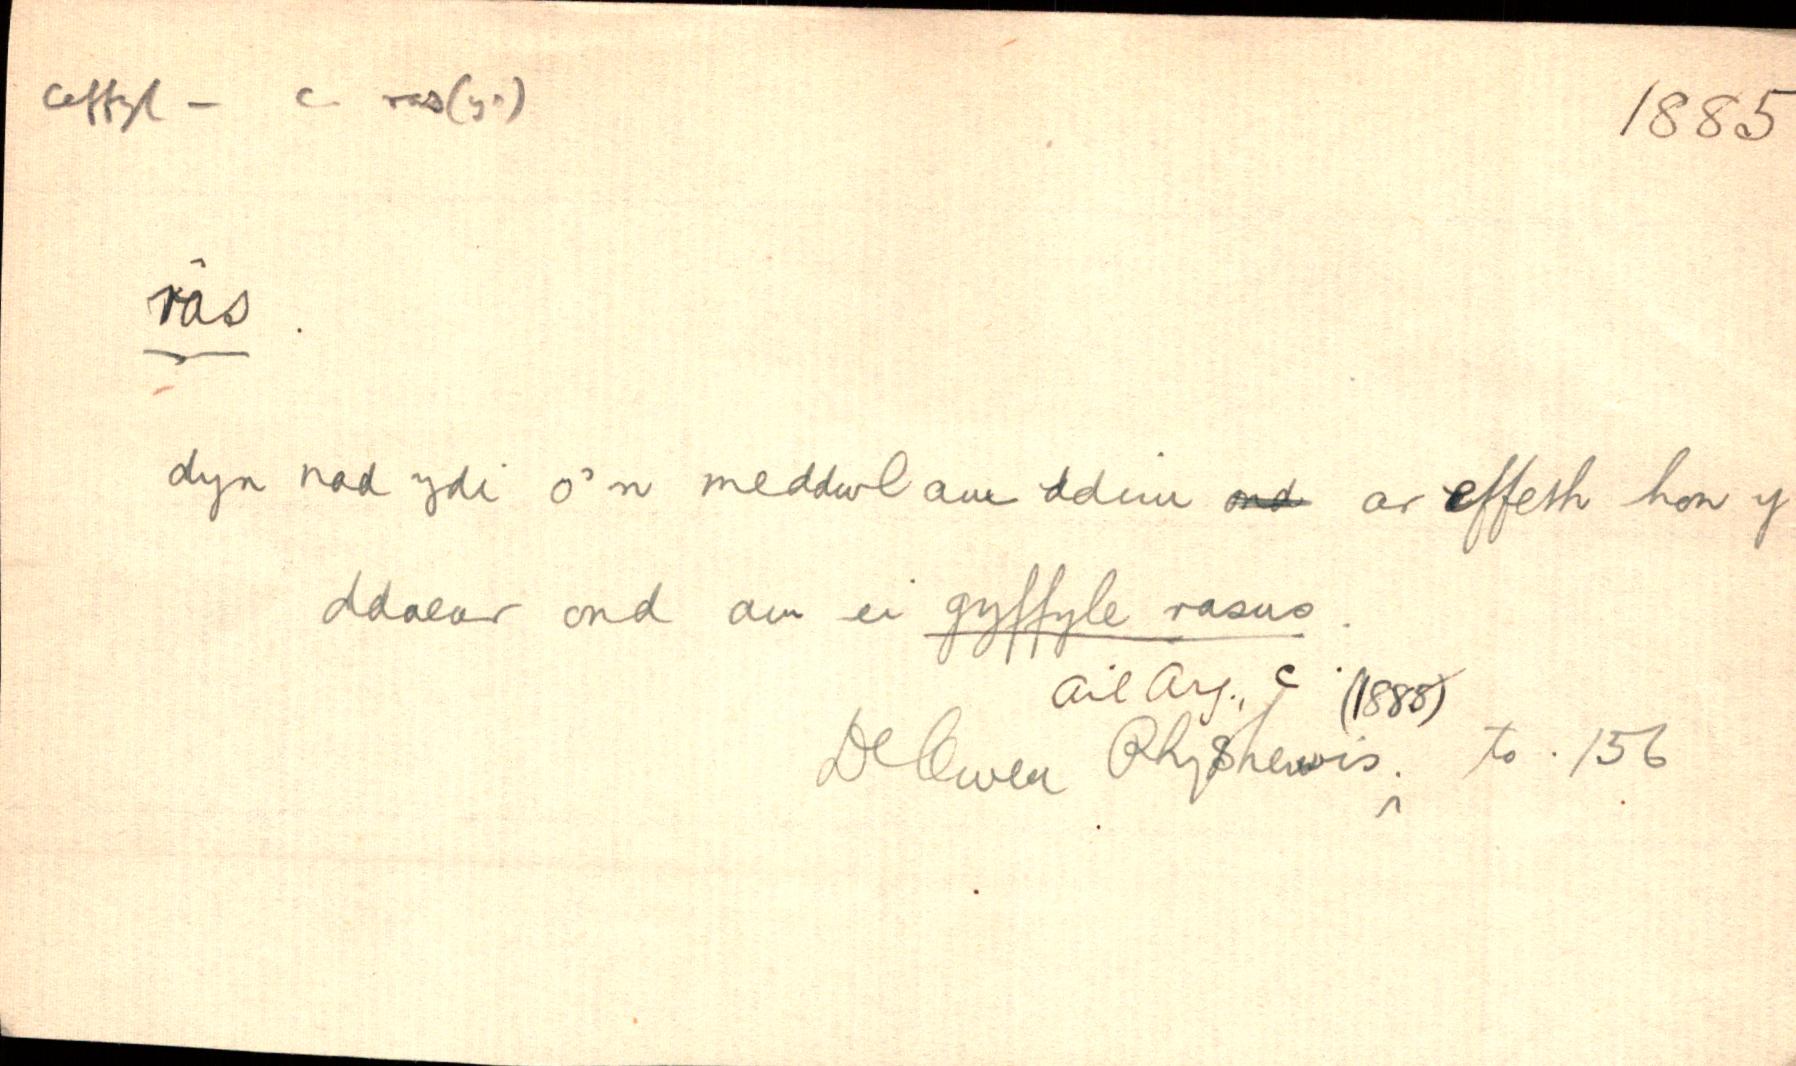 ceffyl – c. ras(ys) 1885
râs.
dyn nad ydi o'n meddwl am ddim ond ar effeth hon y
ddaear ond am ei gyffyle rasus.
Ail Arg., c. (1888)
Dl Owen Rhys Lewis, to. 156